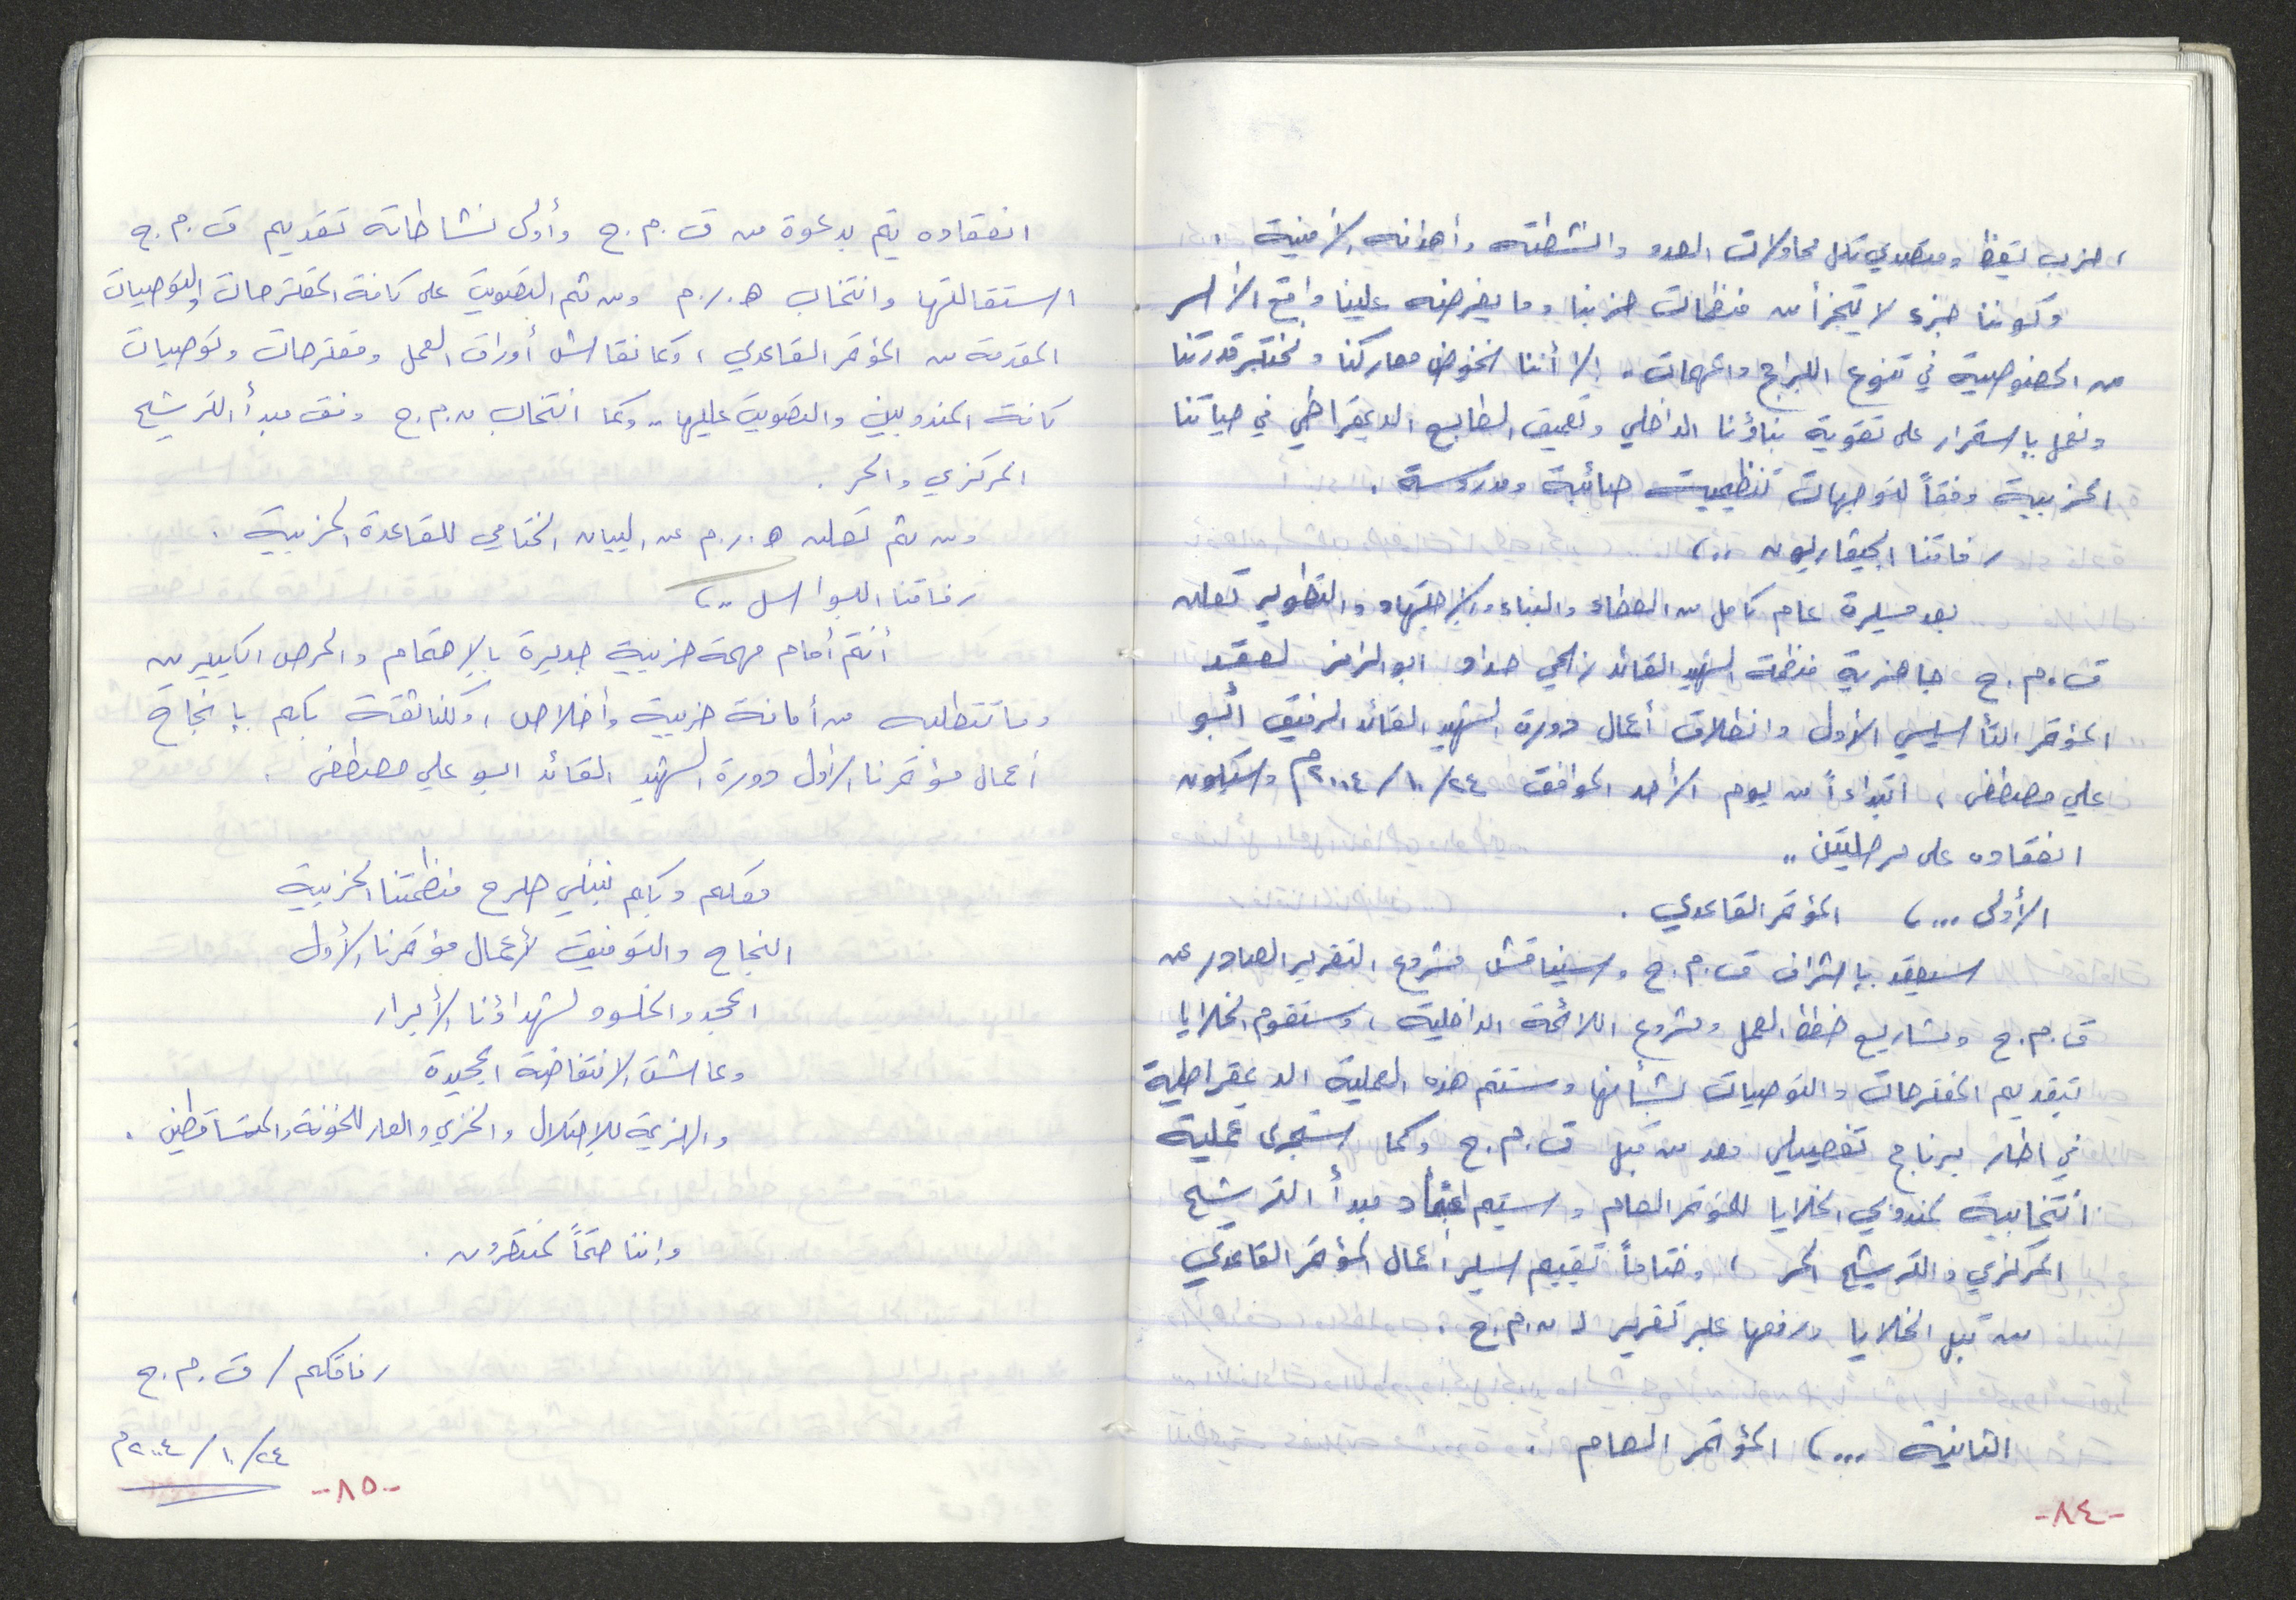 ، حزب يقظ ومتصدي لكل محاولات العدو وانشطته وأهدافه الأمنية .
وكوننا جزء لا يتجزأ من منظمات حزبنا وما يفرضه علينا واقع الأسر
من الخصوصية في تنوع البرامج والمهمات . إلا أننا نخوض معاركنا ونختبر قدرتنا
ونعمل بإستمرار على تقوية بناؤنا الداخلي وتعميق الطابع الديمقراطي في حياتنا
الحزبية وفقاً لتوجهات تنظيمية صائبة ومدروسة .
رفاقنا الجيفاريون ..،
بعد مسيرة عام كامل من العطاء والبناء والإجتهاد والتطوير تعلن
ق.م.ج جاهزية منظمة الشهيد القائد رائحي حداد ابو الرامز لعقد
المؤتمر التأسيسي الأول وانطلاق أعمال دورة الشهيد القائد الرفيق أبو
علي مصطفى ، ابتداءاً من يوم الأحد الموافق ٢٤/١٠/٢٠٠٤م وسيكون
انعقاده على مرحلتين ..
الأولى ...، المؤتمر القاعدي .
سيعقد بإشراف ق.م.ج وسيناقش مشروع التقرير الصادر عن
ق.م.ج ومشاريع خطط العمل ومشروع اللائحة الداخلية ، وستقوم الخلايا
بتقديم المقترحات والتوصيات بشأنها وستتم هذه العملية الديمقراطية
في اطار برنامج تفصيلي معد من قبل ق.م.ج وكما ستجرى عملية
انتخابية لمندوبي الخلايا للمؤتمر العام وسيتم اعتماد مبدأ الترشيح
المركزي والترشيح الحر ، وختاماً تقييم لسير أعمال المؤتمر القاعدي
من قبل الخلايا ورفعها عبر تقرير لـ ق.م.ج .
الثانية ...، المؤتمر العام .
-٨٤-
انعقاده يتم بدعوة من ق.م.ج وأولى نشاطاته تقديم ق.م.ج
استقالتها وانتخاب هـ.ر.م ومن ثم التصويت على كافة المقترحات والتوصيات
المقدمة من المؤتمر القاعدي ، وكما نقاش أوراق العمل ومقترحات وتوصيات
كافة المندوبين والتصويت عليها .. وكما انتخاب ق.م.ج وفق مبدأ الترشيح
المركزي والحر .
ومن ثم تعلن هـ.ر.م عن البيان الختامي للقاعدة الحزبية .
رفاقنا البواسل ..،
أنتم أمام مهمة حزبية جديرة بالإهتمام والحرص الكبيرين
وما تتطلبه من أمانة حزبية وأخلاص ، وكلنا ثقة بكم بإنجاح
أعمال مؤتمرنا الأول دورة الشهيد القائد ابو علي مصطفى .
معكم وبكم نبني صرح منظمتنا الحزبية
النجاح والتوفيق لأعمال مؤتمرنا الأول
المجد والخلود لشهداؤنا الأبرار
وعاشت الانتفاضة المجيدة
والهزيمة للإحتلال والخزي والعار للخونة والمتساقطين .
وإننا حتماً لمنتصرون .
رفاقكم / ق.م.ج
٢٤/١٠/٢٠٠٤م
-٨٥-